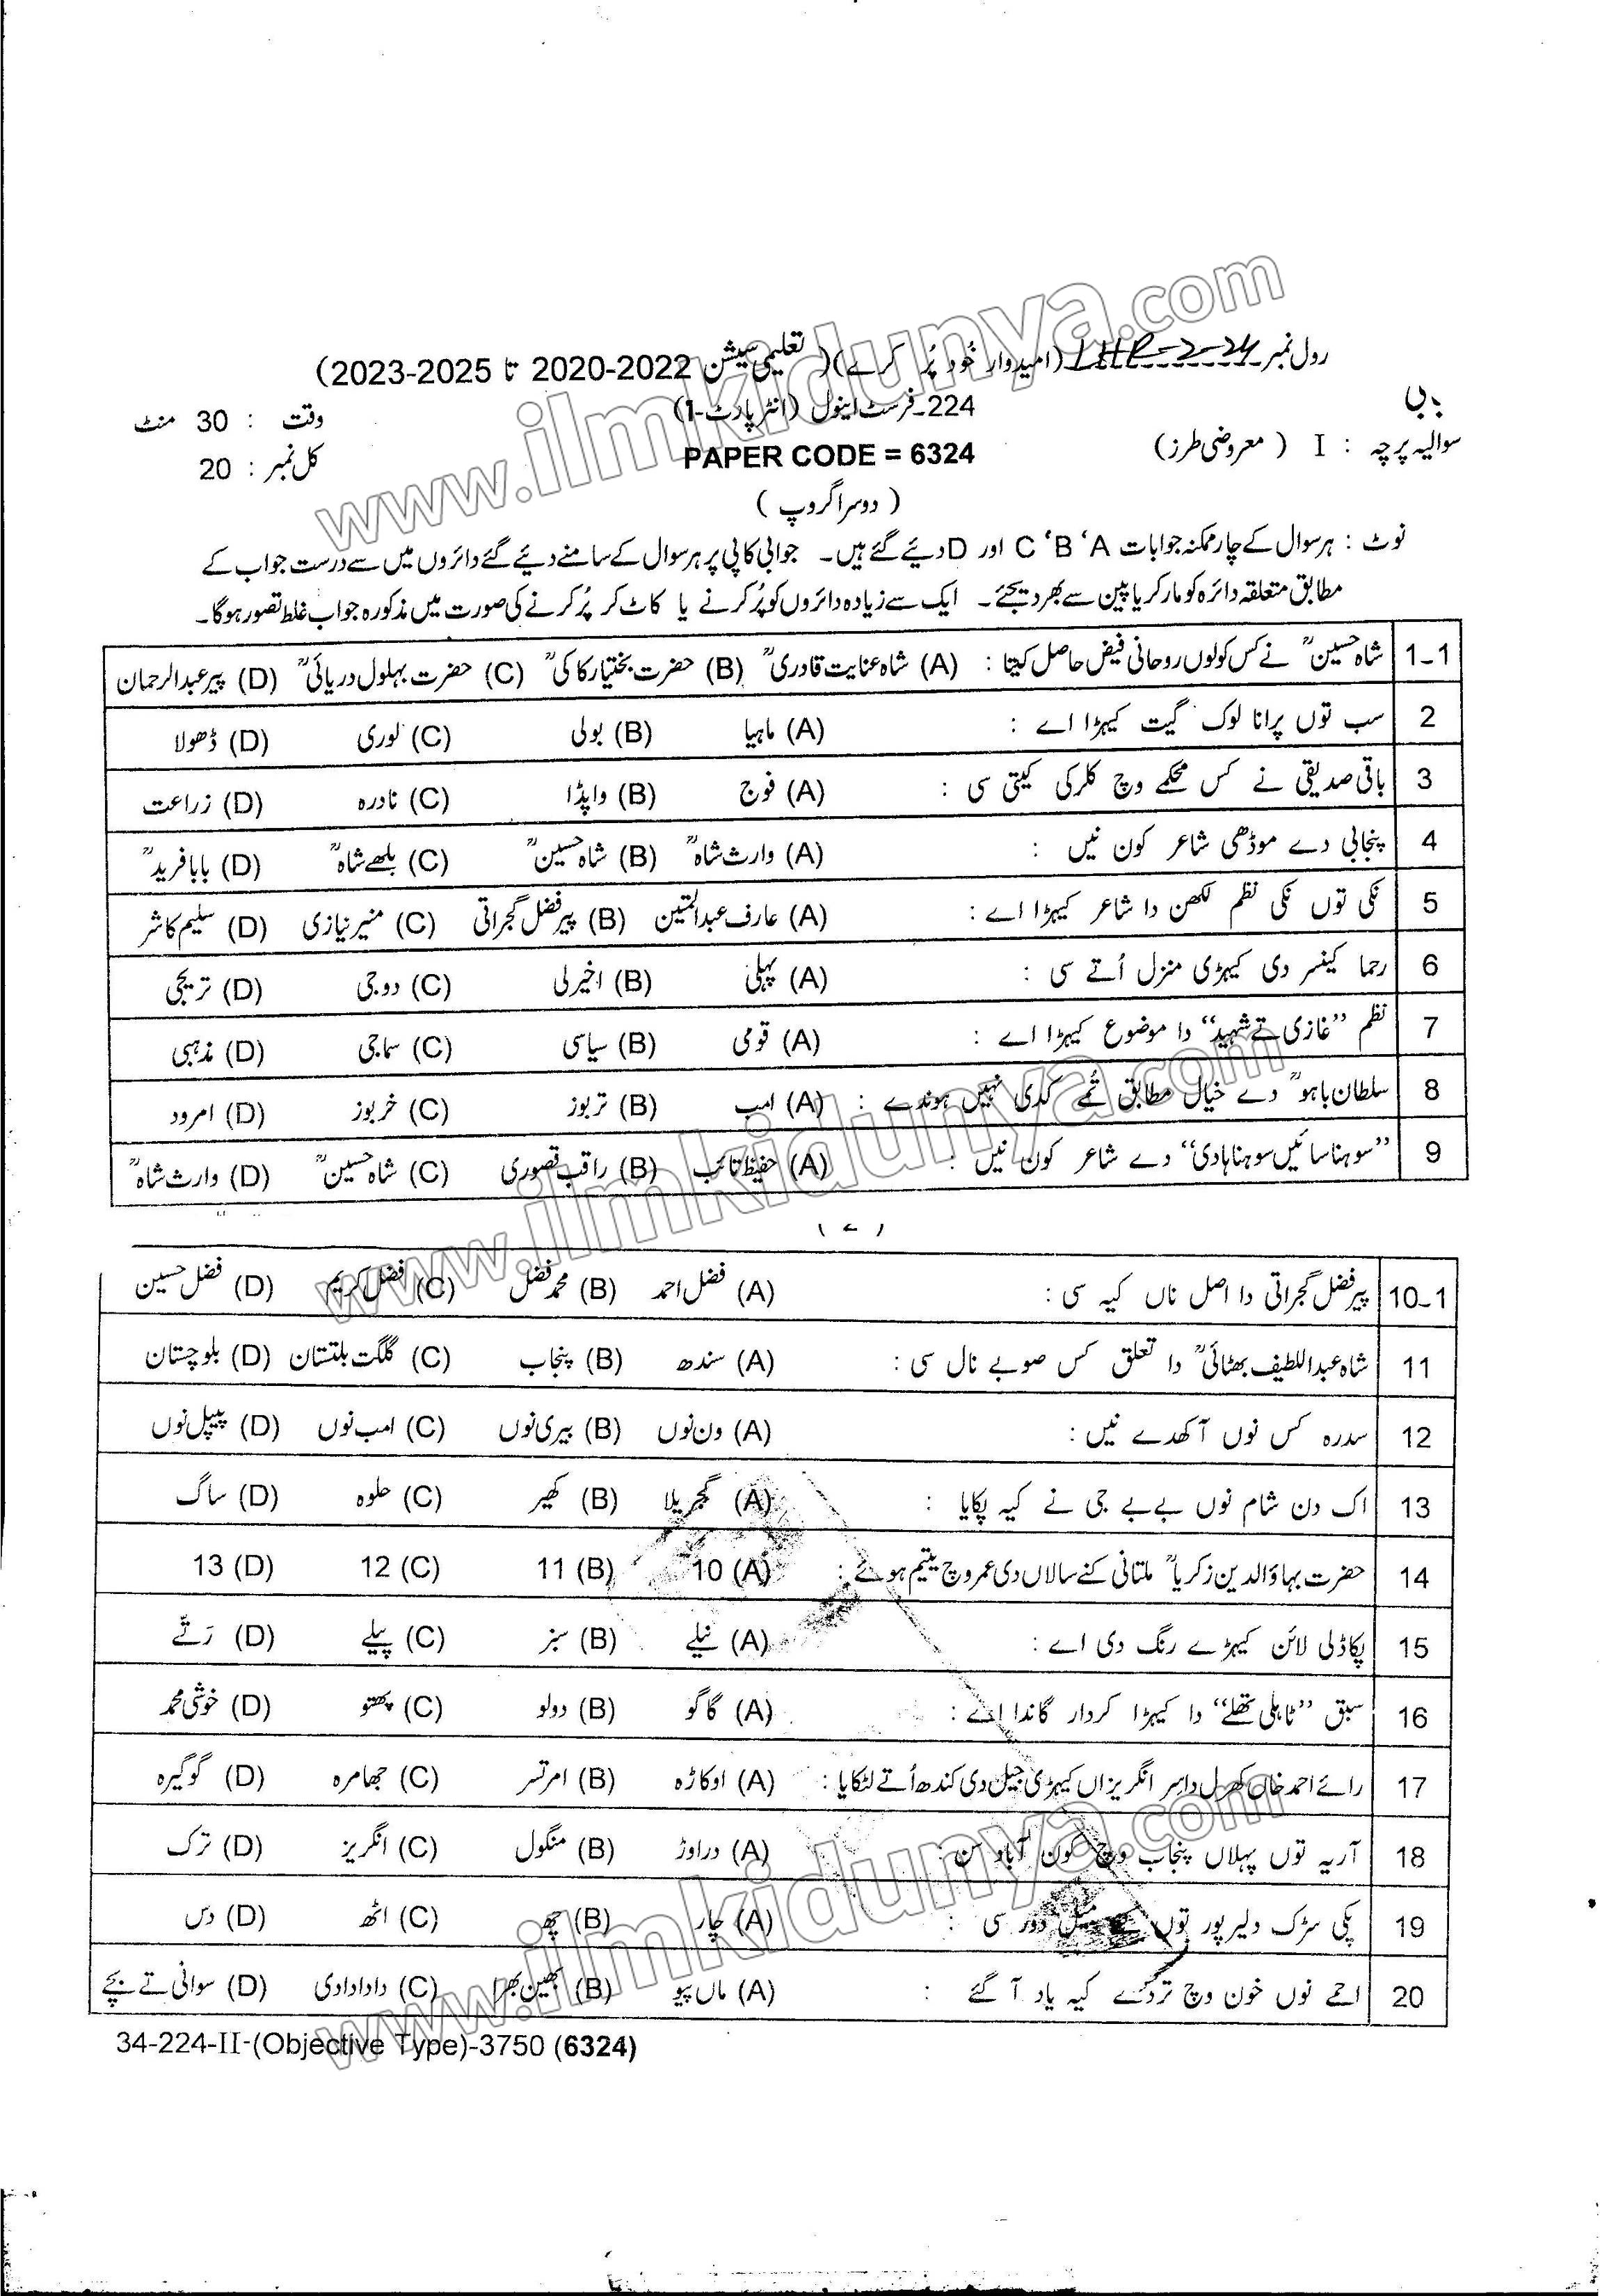 رول نمبر (امیدوار خود پُر کرے) (تعلیمی سیشن 2022-2020 تا 2025-2023)
224۔فرسٹ اینول (انٹر پارٹ-1)
وقت : 30 منٹ
سوالیہ پرچہ : I (معروضی طرز)
PAPER CODE = 6324
کل نمبر : 20
(دوسرا گروپ)
نوٹ : ہر سوال کے چار ممکنہ جوابات A‘ B‘ C اور D دیئے گئے ہیں۔ جوابی کاپی پر ہر سوال کے سامنے دیئے گئے دائروں میں سے درست جواب کے
مطابق متعلقہ دائرہ کو مارکر یا پین سے بھر دیجئے۔ ایک سے زیادہ دائروں کو پُر کرنے یا کاٹ کر پُر کرنے کی صورت میں مذکورہ جواب غلط تصور ہوگا۔
1-1 شاہ حسینؒ نے کس کولوں روحانی فیض حاصل کیتا : (A) شاہ عنایت قادریؒ (B) حضرت بختیار کاکیؒ (C) حضرت بہلول دریائیؒ (D) پیر عبدالرحمان
2 سب توں پرانا لوک گیت کیہڑا اے : (A) ماہیا (B) بولی (C) لوری (D) ڈھولا
3 باقی صدیقی نے کس محکمے وچ کلرکی کیتی سی : (A) فوج (B) واپڈا (C) نادرہ (D) زراعت
4 پنجابی دے موڈھی شاعر کون نیں : (A) وارث شاہؒ (B) شاہ حسینؒ (C) بلھے شاہؒ (D) بابا فریدؒ
5 نکی توں نکی نظم لکھن دا شاعر کیہڑا اے : (A) عارف عبدالمتین (B) پیر فضل گجراتی (C) منیر نیازی (D) سلیم کاشر
6 رحما کینسر دی کیہڑی منزل اُتے سی : (A) پہلی (B) اخیرلی (C) دوجی (D) تریجی
7 نظم ”غازی تے شہید“ دا موضوع کیہڑا اے : (A) قومی (B) سیاسی (C) سماجی (D) مذہبی
8 سلطان باہوؒ دے خیال مطابق تُمے کدی نہیں ہوندے : (A) امب (B) تربوز (C) خربوز (D) امرود
9 ”سوہنا سائیں سوہنا ہادی“ دے شاعر کون نیں : (A) حفیظ تائب (B) راقب قصوری (C) شاہ حسینؒ (D) وارث شاہؒ
10-1 پیر فضل گجراتی دا اصل ناں کیہ سی : (A) فضل احمد (B) محمد فضل (C) فضل کریم (D) فضل حسین
11 شاہ عبداللطیف بھٹائیؒ دا تعلق کس صوبے نال سی : (A) سندھ (B) پنجاب (C) گلگت بلتستان (D) بلوچستان
12 سدرہ کس نوں آکھدے نیں : (A) ون نوں (B) بیری نوں (C) امب نوں (D) پیپل نوں
13 اک دن شام نوں بے بے جی نے کیہ پکایا : (A) گجریلا (B) کھیر (C) حلوہ (D) ساگ
14 حضرت بہاؤالدین زکریاؒ ملتانی کنے سالاں دی عمر وچ یتیم ہوئے : (A) 10 (B) 11 (C) 12 (D) 13
15 پکاڈلی لائن کیہڑے رنگ دی اے : (A) نیلے (B) سبز (C) پیلے (D) رَتّے
16 سبق ”ٹاہلی تھلے“ دا کیہڑا کردار گاندا اے : (A) گاگو (B) دولو (C) پھتو (D) خوشی محمد
17 رائے احمد خاں کھرل دا سر انگریزاں کیہڑی جیل دی کندھ اُتے لٹکایا : (A) اوکاڑہ (B) امرتسر (C) جھامرہ (D) گوگیرہ
18 آریہ توں پہلاں پنجاب وچ کون آباد سن (A) دراوڑ (B) منگول (C) انگریز (D) ترک
19 پکی سڑک دلیر پور توں میل دور سی : (A) چار (B) چھ (C) اٹھ (D) دس
20 اجمے نوں خون وچ تردے کیہ یاد آ گئے : (A) ماں پیو (B) بھین بھرا (C) دادا دادی (D) سوانی تے بچے
34-224-II-(Objective Type)-3750 (6324)
www.ilmkidunya.com
www.ilmkidunya.com
www.ilmkidunya.com